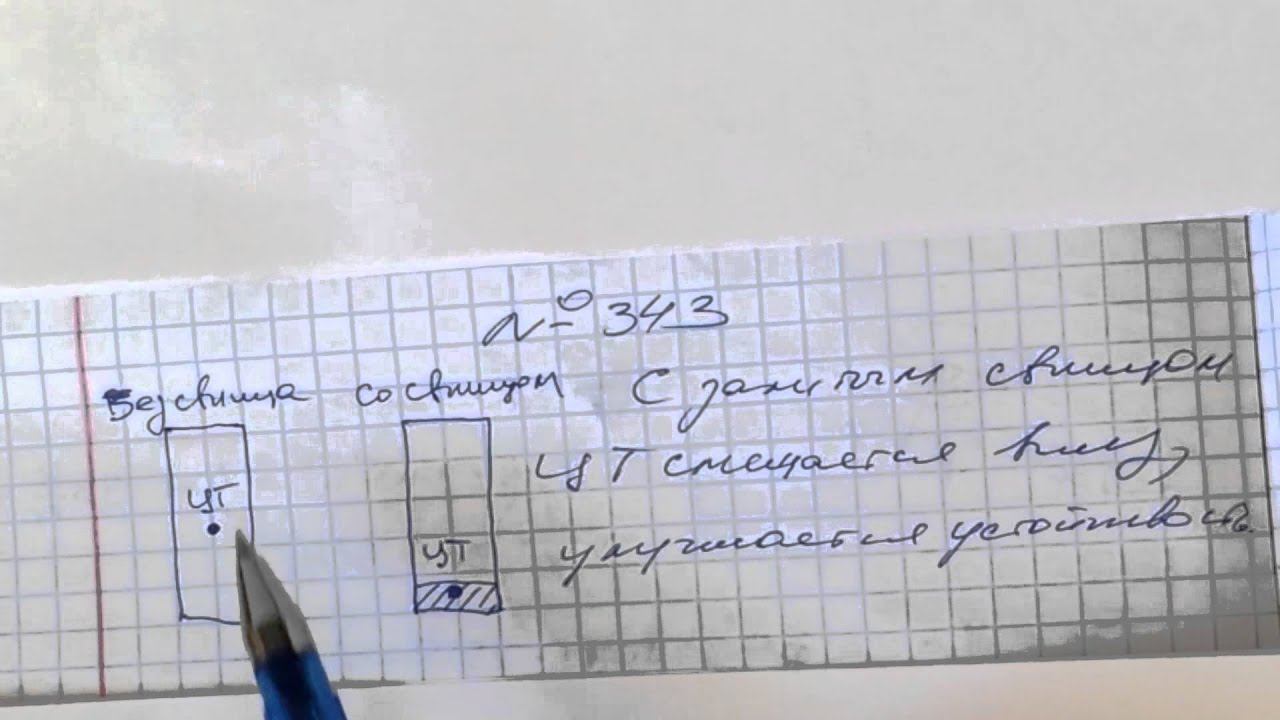 № 343
Без свинца со свинцом С залитым свинцом
ЦТ смещается вниз,
улучшается устойчивость.
ЦТ
ЦТ